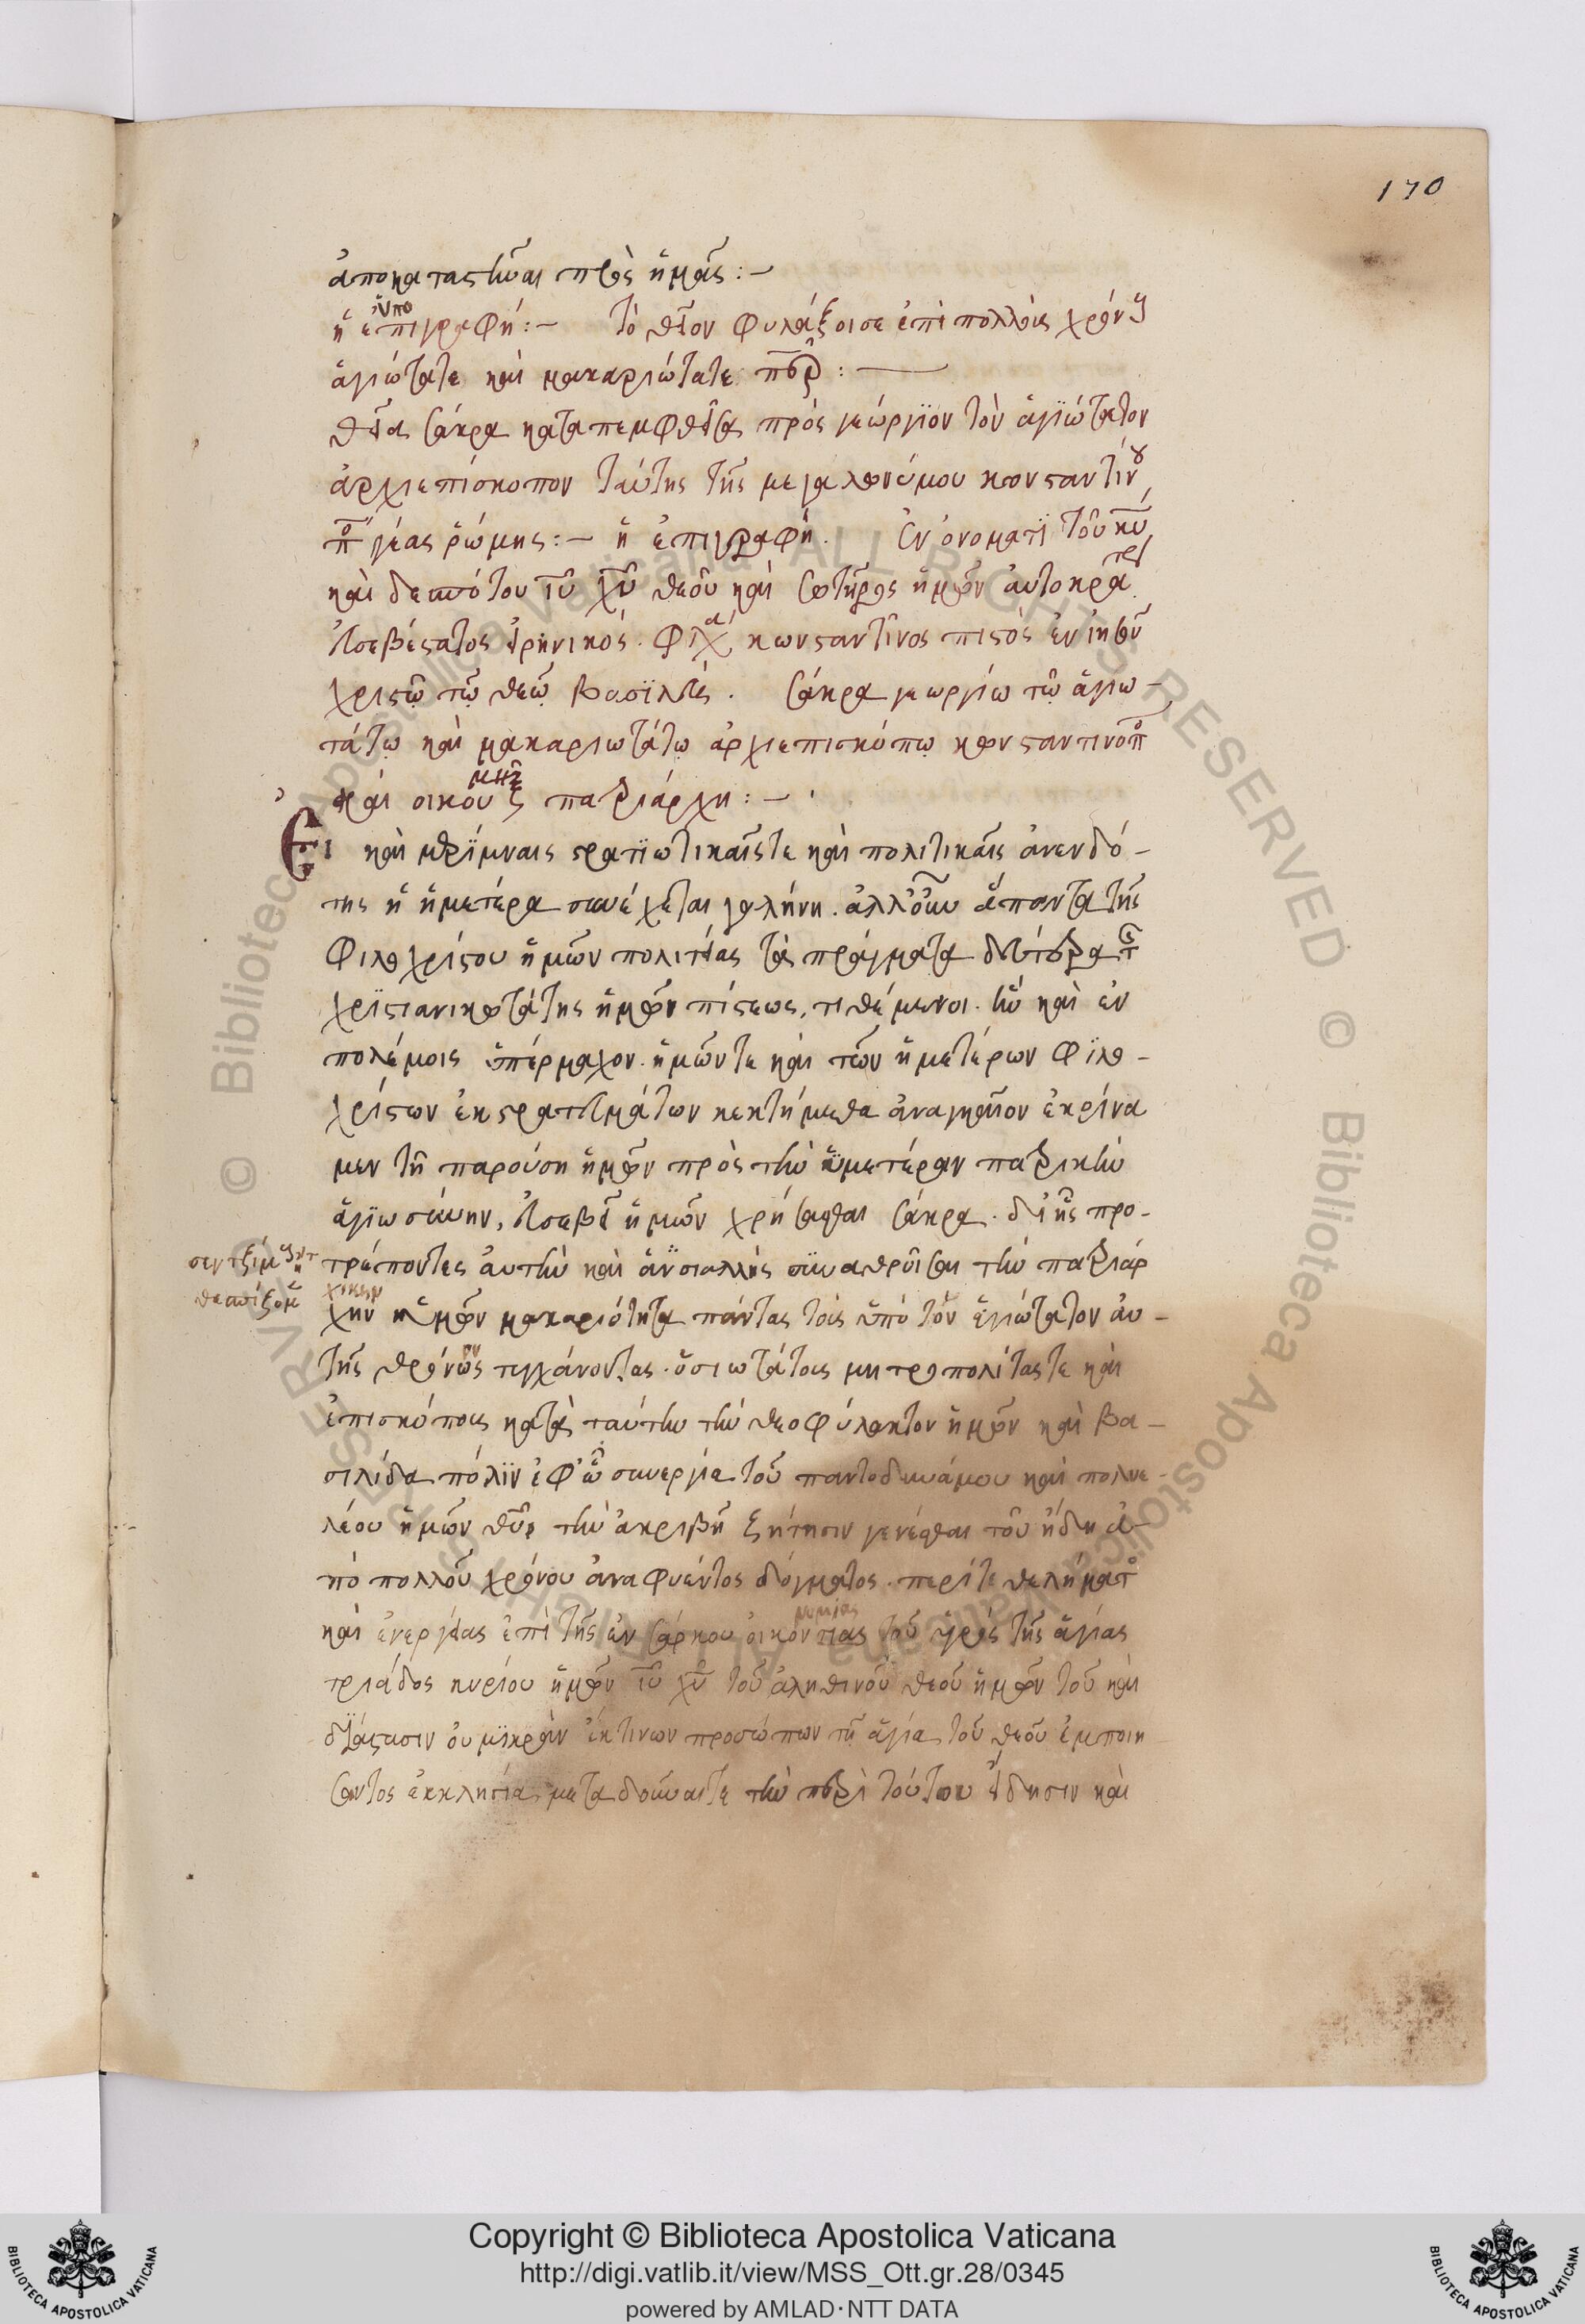 170
ἀποκαταστῆναι πρὸς ἡμᾶς :-
ἡ ἐπιγραφή :- Τὸ θεῖον φυλάξοι σε ἐπὶ πολλοῖς χρόνοις
ὑπο
ἁγιώτατε καὶ μακαριώτατε περ :-
Θεία σάκρα καταπεμφθεῖσα πρὸς γεώργιον τὸν ἁγιώτατον
ἀρχιεπίσκοπον ταύτης τῆς μεγαλωνύμου κωνσταντίνου
πο νέας ῥώμης :- ἡ ἐπιγραφή. Ἐν ὀνόματι τοῦ κυ
καὶ δεσπότου ιυ χυ θεοῦ καὶ σωτῆρος ἡμῶν αὐτοκρατ
εὐσεβέστατος εἰρηνικός. φλα κωνσταντῖνος πιστὸς ἐν ιησοῦ
χριστῷ τῷ θεῷ βασιλεύς. Σάκρα γεωργίω τῷ ἁγιω-
τάτῳ καὶ μακαριωτάτῳ ἀρχιεπισκόπῳ κωνσταντινοπ
καὶ οἰκουμενικῷ πατριάρχη :-
Εἰ καὶ μερίμναις στρατιωτικαῖς τε καὶ πολιτικαῖς ἀνενδό-
της ἡ ἡμετέρα συνέχεται γαλήνη. ἀλλ' οὖν ἅπαντα τῆς
φιλοχρίστου ἡμῶν πολιτείας τὰ πράγματα δεύτερα τ
χριστιανικωτάτης ἡμῶν πίστεως, τιθέμενοι. ἣν καὶ ἐν
πολέμοις ὑπέρμαχον. ἡμῶν τε καὶ τῶν ἡμετέρων φιλο-
χρίστων ἐκστρατευμάτων κεκτήμεθα ἀναγκαῖον ἐκρίνα
μεν τῇ παρούση ἡμῶν πρὸς τὴν ὑμετέραν πατρικὴν
ἁγιωσύνην, εὐσεβεῖ ἡμῶν χρήσασθαι σάκρα. δι' ἧς προ-
τρέποντες αὐτὴν καὶ συναθροῖσαι τὴν πατριαρ
θεσπίζομ
χικην
χὴν ἡμῶν μακαριότητα πάντας τοὺς ὑπὸ τὸν ἁγιώτατον αὐ-
τῆς θρόνον τυγχάνοντας. ὁσιωτάτους μητροπολίτας τε καὶ
ἐπισκόπους κατὰ ταύτην τὴν θεοφύλακτον ἡμῶν καὶ βα-
σιλίδα πόλιν ἐφ' ᾧ συνεργία τοῦ παντοδυνάμου καὶ πολυε-
λέου ἡμῶν θυ τὴν ἀκριβῆ ζήτησιν γενέσθαι τοῦ ἤδη ἀ-
πὸ πολλοῦ χρόνου ἀναφυέντος δόγματος. περί τε θελήματ
καὶ ἐνεργείας ἐπὶ τῆς ἐν σάρκου οἰκονομίας τοῦ ἑνὸς τῆς ἁγίας
τριάδος κυρίου ἡμῶν ιυ χυ τοῦ ἀληθινοῦ θεοῦ ἡμῶν τοῦ καὶ
διάστασιν οὐ μικρὰν ἔκ τινων προσώπων τῇ ἁγία τοῦ θεοῦ ἐμποιή
σαντος ἐκκλησία μεταδοῦναί τε τὴν περὶ τούτου εἴδησιν καὶ
Copyright © Biblioteca Apostolica Vaticana
http://digi.vatlib.it/view/MSS_Ott.gr.28/0345
powered by AMLAD·NTT DATA